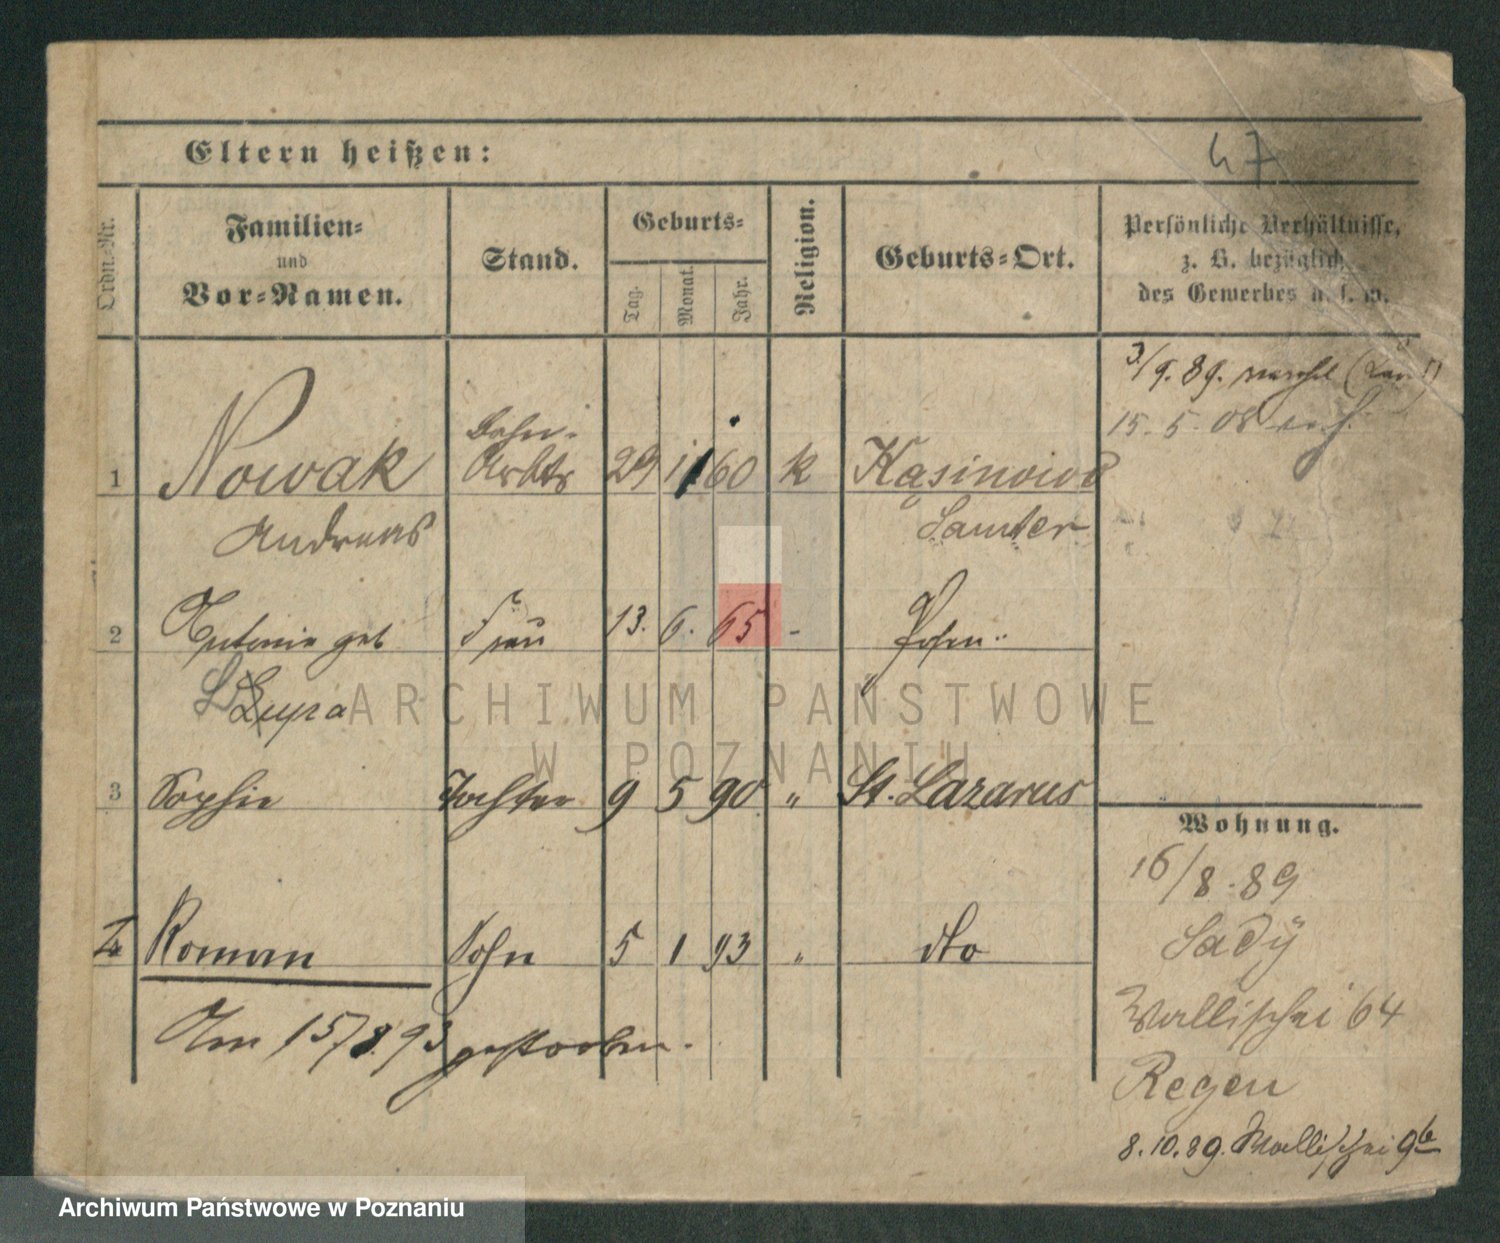 Eltern heißen:
47
Ordn.-Nr.
Familien-
und
Vor-Namen.
Stand.
Geburts-
Tag.
Monat.
Jahr.
Religion.
Geburts-Ort.
Persönliche Verhältnisse,
z. B. bezüglich
des Gewerbes u. s. w.
3/9. 89.
15. 5. 08
1 Nowak Bahn-
Arbtr 29 11 60 k Kąsinowo
Andreas Samter
2 Antonie geb Frau 13. 6. 65 - Posen
Lupa
3 Sophie Tochter 9 5 90 " St. Lazarus
4 Roman Sohn 5 1 93 " dto
Am 15/8. 93 gestorben.
Wohnung.
16/8. 89
Sady
Wallischei 64
Regen
8. 10. 89. Wallischei 9b
ARCHIWUM PAŃSTWOWE
W POZNANIU
Archiwum Państwowe w Poznaniu